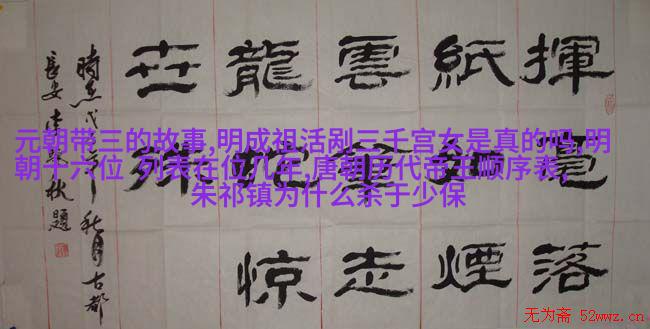 揮毫落
紙煙
雲走
龍蛇惊
世殊
秋月古都
長安秋題
元朝带三的故事,明成祖活剐三千宫女是真的吗,明
朝十六位 列表在位几年,唐朝历代帝王顺序表,
朱祁镇为什么杀于少保
无为斋 52wwz.cn